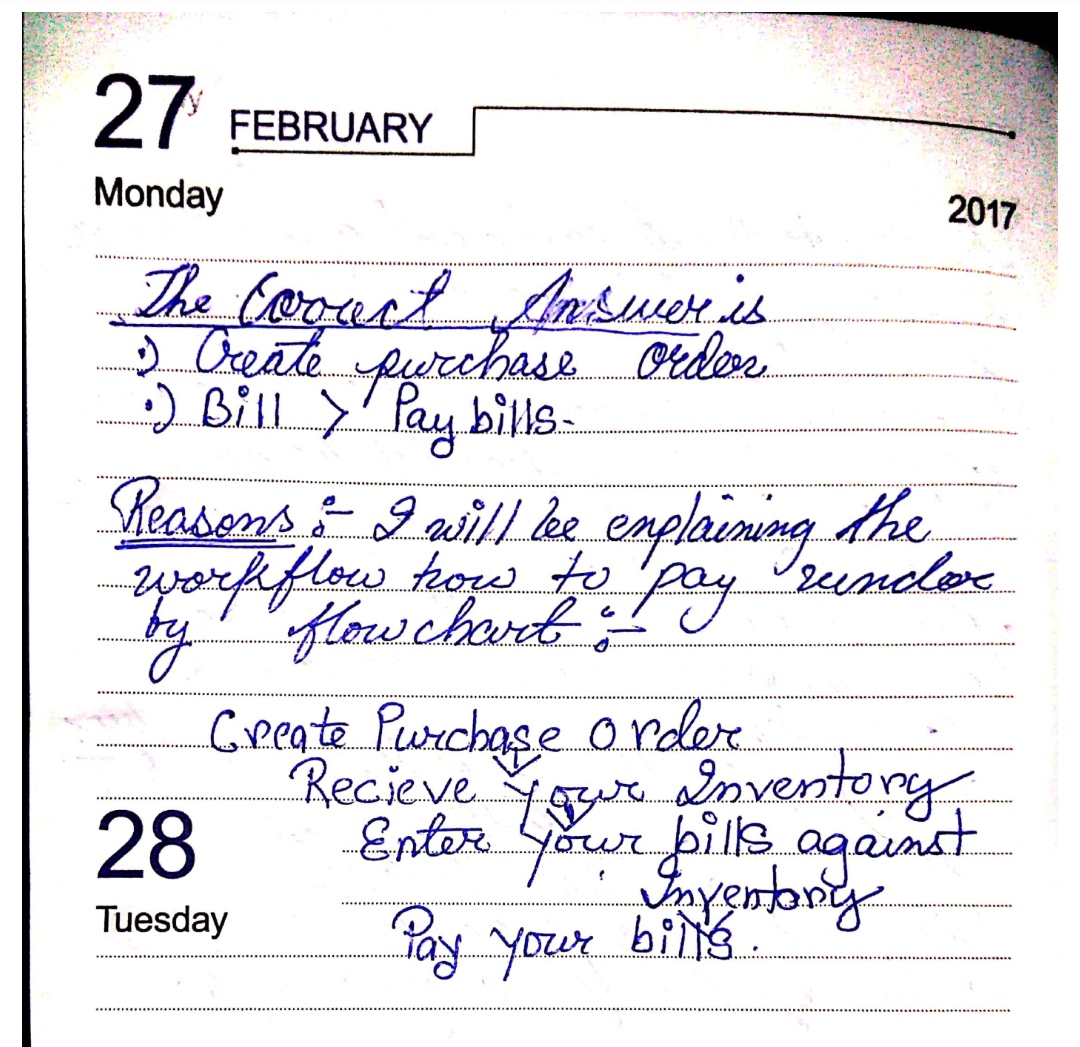 27 FEBRUARY
Monday
2017
The Correct Answer is
:) Create purchase order
:) Bill > Pay bills-
Reasons :- I will be explaining the
workflow how to pay vendor
by flowchart :-
Create Purchase Order
Recieve your Inventory
28
Enter your bills against
Inventory
Tuesday
Pay your bills.